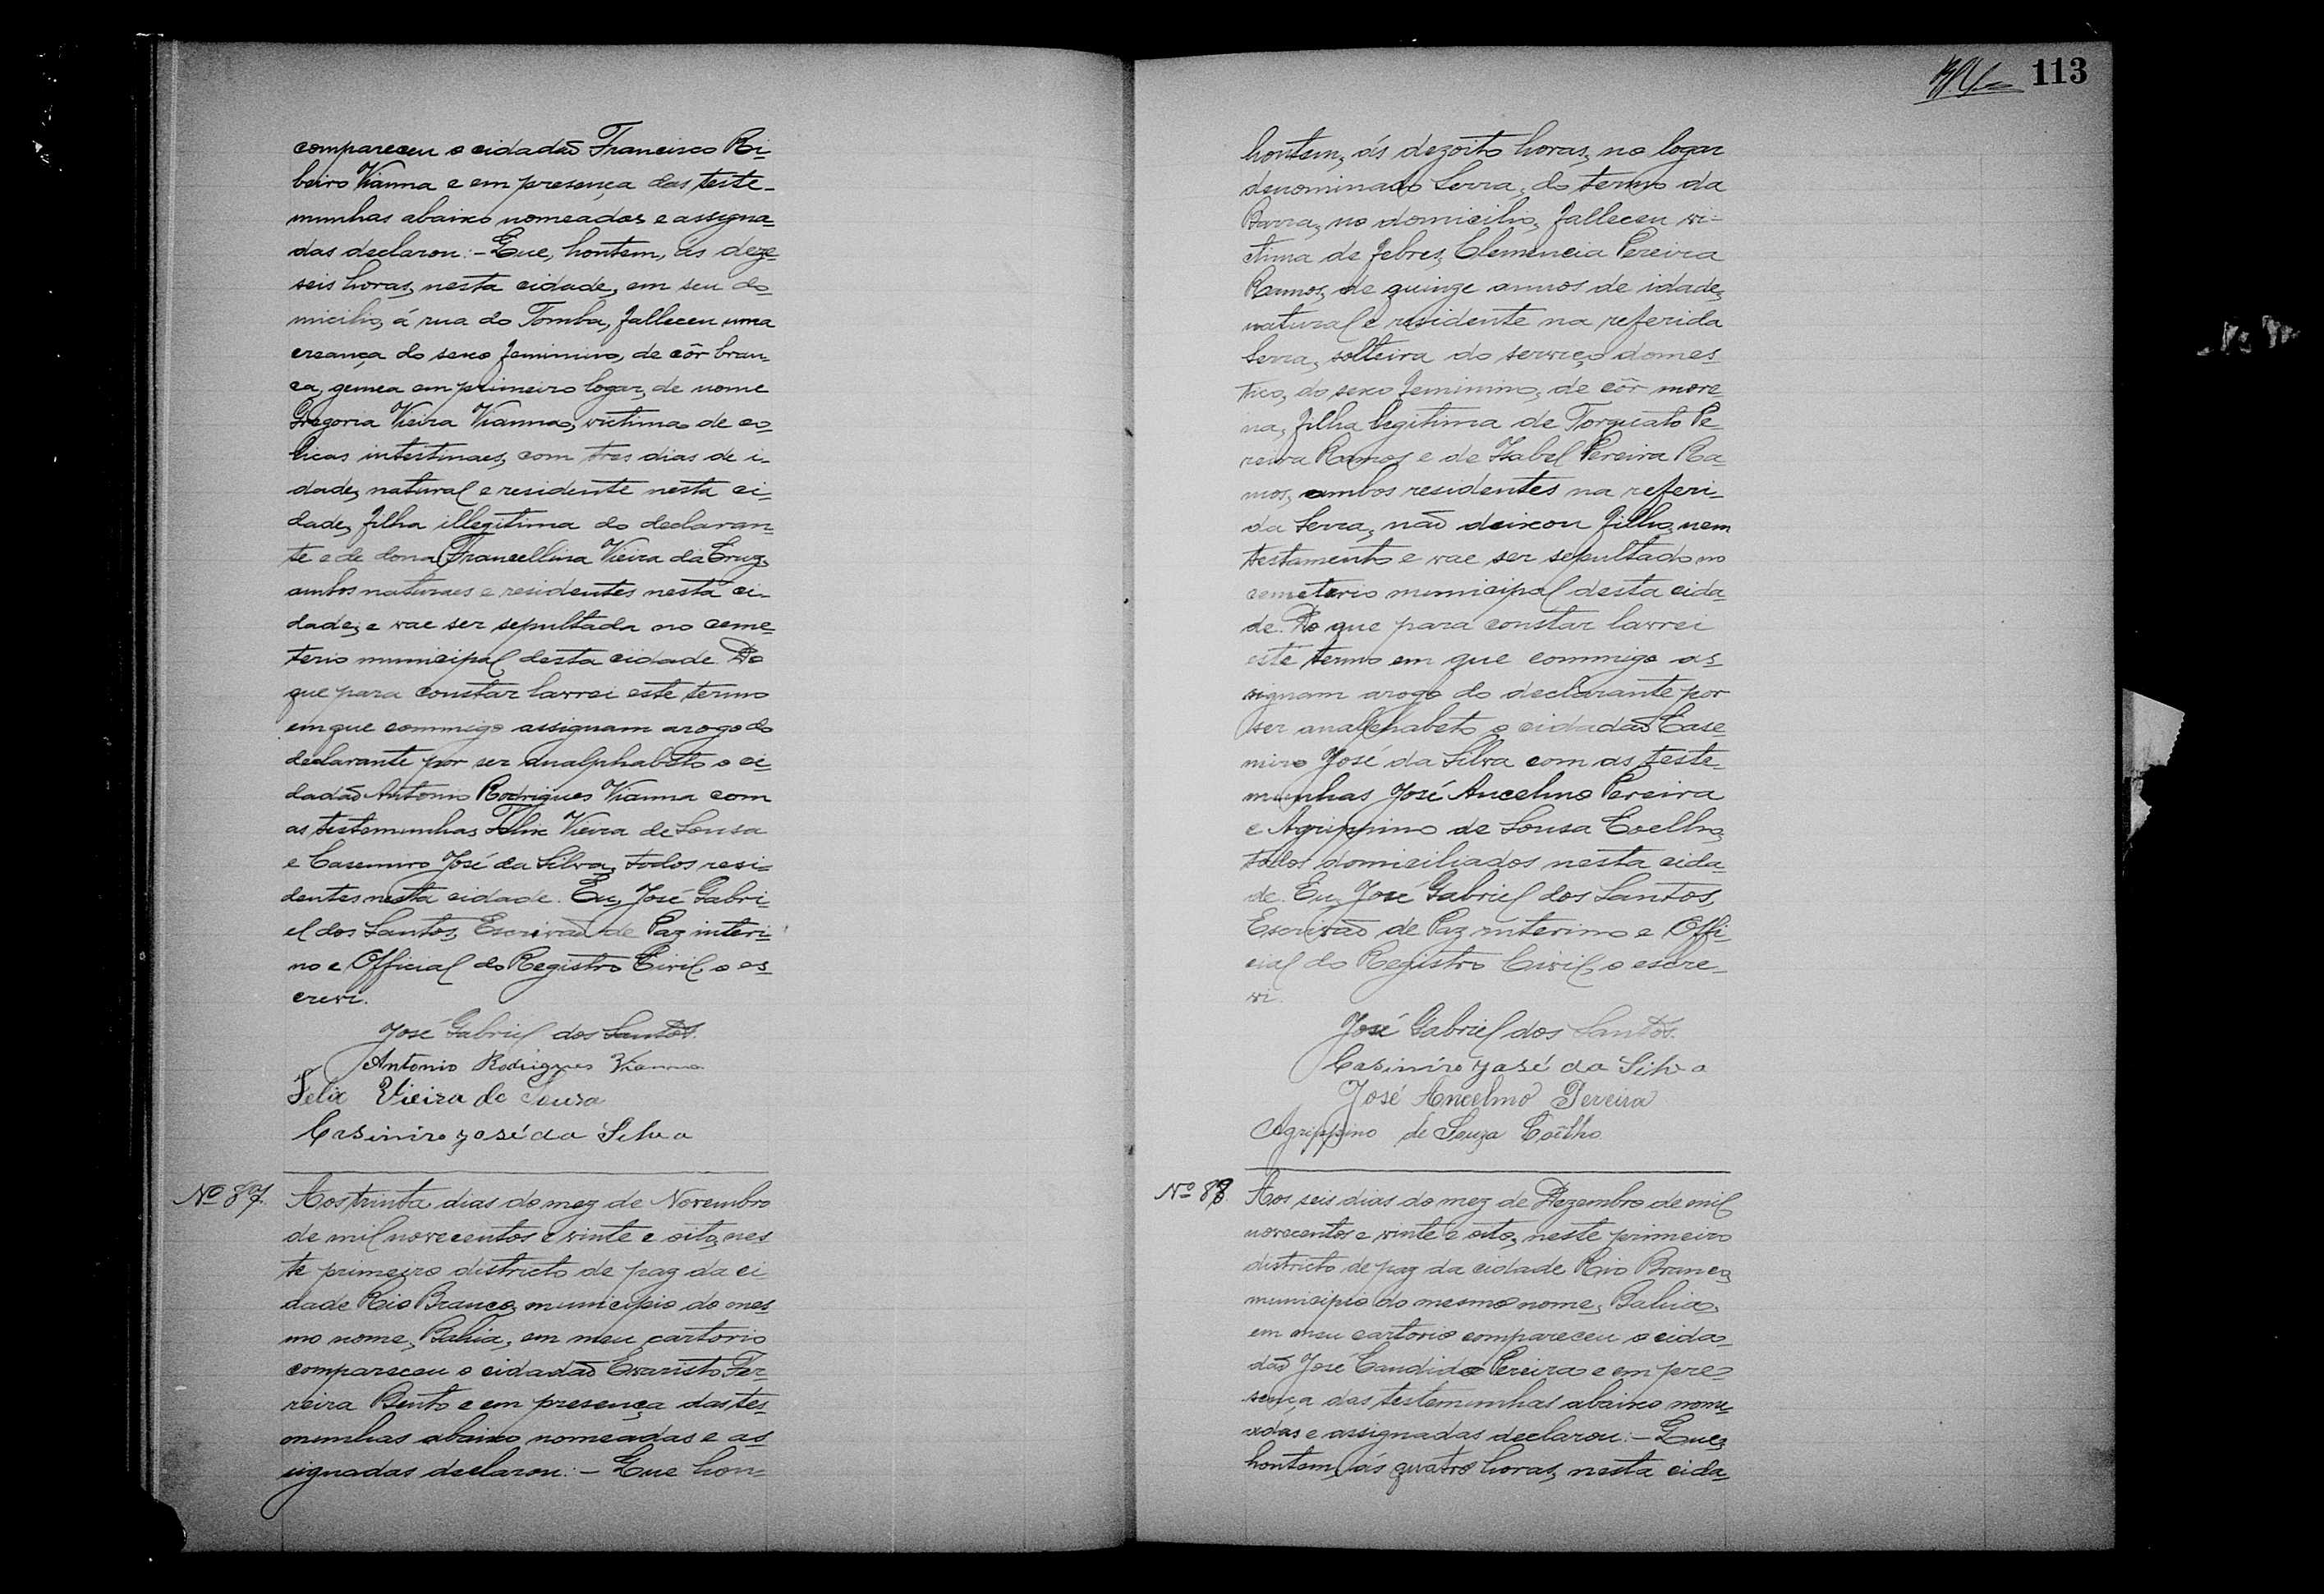 compareceu o cidadão Francisco Ri-
beiro Vianna e em presença das teste-
munhas abaixo nomeadas e assigna-
das declarou: - Que, hontem, ás deze-
seis horas, nesta cidade, em seu do-
micilio, á rua do Tomba, falleceu uma
creança do sexo feminino, de côr bran-
ca, gemea em primeiro logar, de nome
Gregoria Vieira Vianna, victima de co-
licas intestinaes, com tres dias de i-
dade, natural e residente nesta ci-
dade, filha illegitima do declaran-
te e de dona Francellina Vieira da Cruz,
ambos naturaes e residentes nesta ci-
dade, e vae ser sepultada no ceme-
terio municipal desta cidade. Do
que para constar lavrei este termo
em que commigo assignam arogo do
declarante por ser analphabeto o ci-
dadão Antonio Rodrigues Vianna com
as testemunhas Felix Vieira de Sousa
e Casemiro José da Silva, todos resi-
dentes nesta cidade. Eu, José Gabri-
el dos Santos, Escrivão de Paz interi-
no e Official do Registro Civil, o es-
crevi.
José Gabriel dos Santos.
Antonio Rodrigues Vianna
Felix Vieira de Souza
Casimiro José da Silva
Nº 87. Aos trinta dias do mez de Novembro
de mil novecentos e vinte e oito, nes
te primeiro districto de paz da ci
dade Rio Branco, municipio do mes-
mo nome, Bahia, em meu cartorio
compareceu o cidadão Evaristo Fer-
reira Bento e em presença das tes-
munhas abaixo nomeadas e as-
signadas declarou: - Que hon-
113
hontem, ás dezoito horas, no logar
denominado Serra, do termo da
Barra, no domicilio, falleceu vi-
ctima de febres, Clemencia Pereira
Ramos, de quinze annos de idade,
natural e residente na referida
Serra, solteira do serviço domes-
tico, do sexo feminino, de côr more-
na, filha legitima de Torquato Pe-
reira Ramos e de Izabel Pereira Ra-
mos, ambos residentes na referi-
da Serra, não deixou filho, nem
testamento e vae ser sepultado no
cemeterio municipal desta cida-
de. Do que para constar lavrei
este termo em que commigo as-
signam arogo do declarante por
ser analphabeto o cidadão Case-
miro José da Silva com as teste-
munhas José Ancelmo Pereira
e Agrippino de Sousa Coelho,
todos domiciliados nesta cida-
de. Eu, José Gabriel dos Santos,
Escrivão de Paz interino e Offi-
cial do Registro Civil, o escre-
vi.
José Gabriel dos Santos.
Casimiro José da Silva
José Ancelmo Pereira
Agrippino de Souza Coêlho
Nº 88. Aos seis dias do mez de Dezembro de mil
novecentos e vinte e oito, neste primeiro
districto de paz da cidade Rio Branco,
municipio do mesmo nome, Bahia,
em meu cartorio compareceu o cida-
dão José Candido Pereira e em pre-
sença das testemunhas abaixo nome-
adas e assignadas declarou: - Que,
hontem, ás quatro horas, nesta cida-